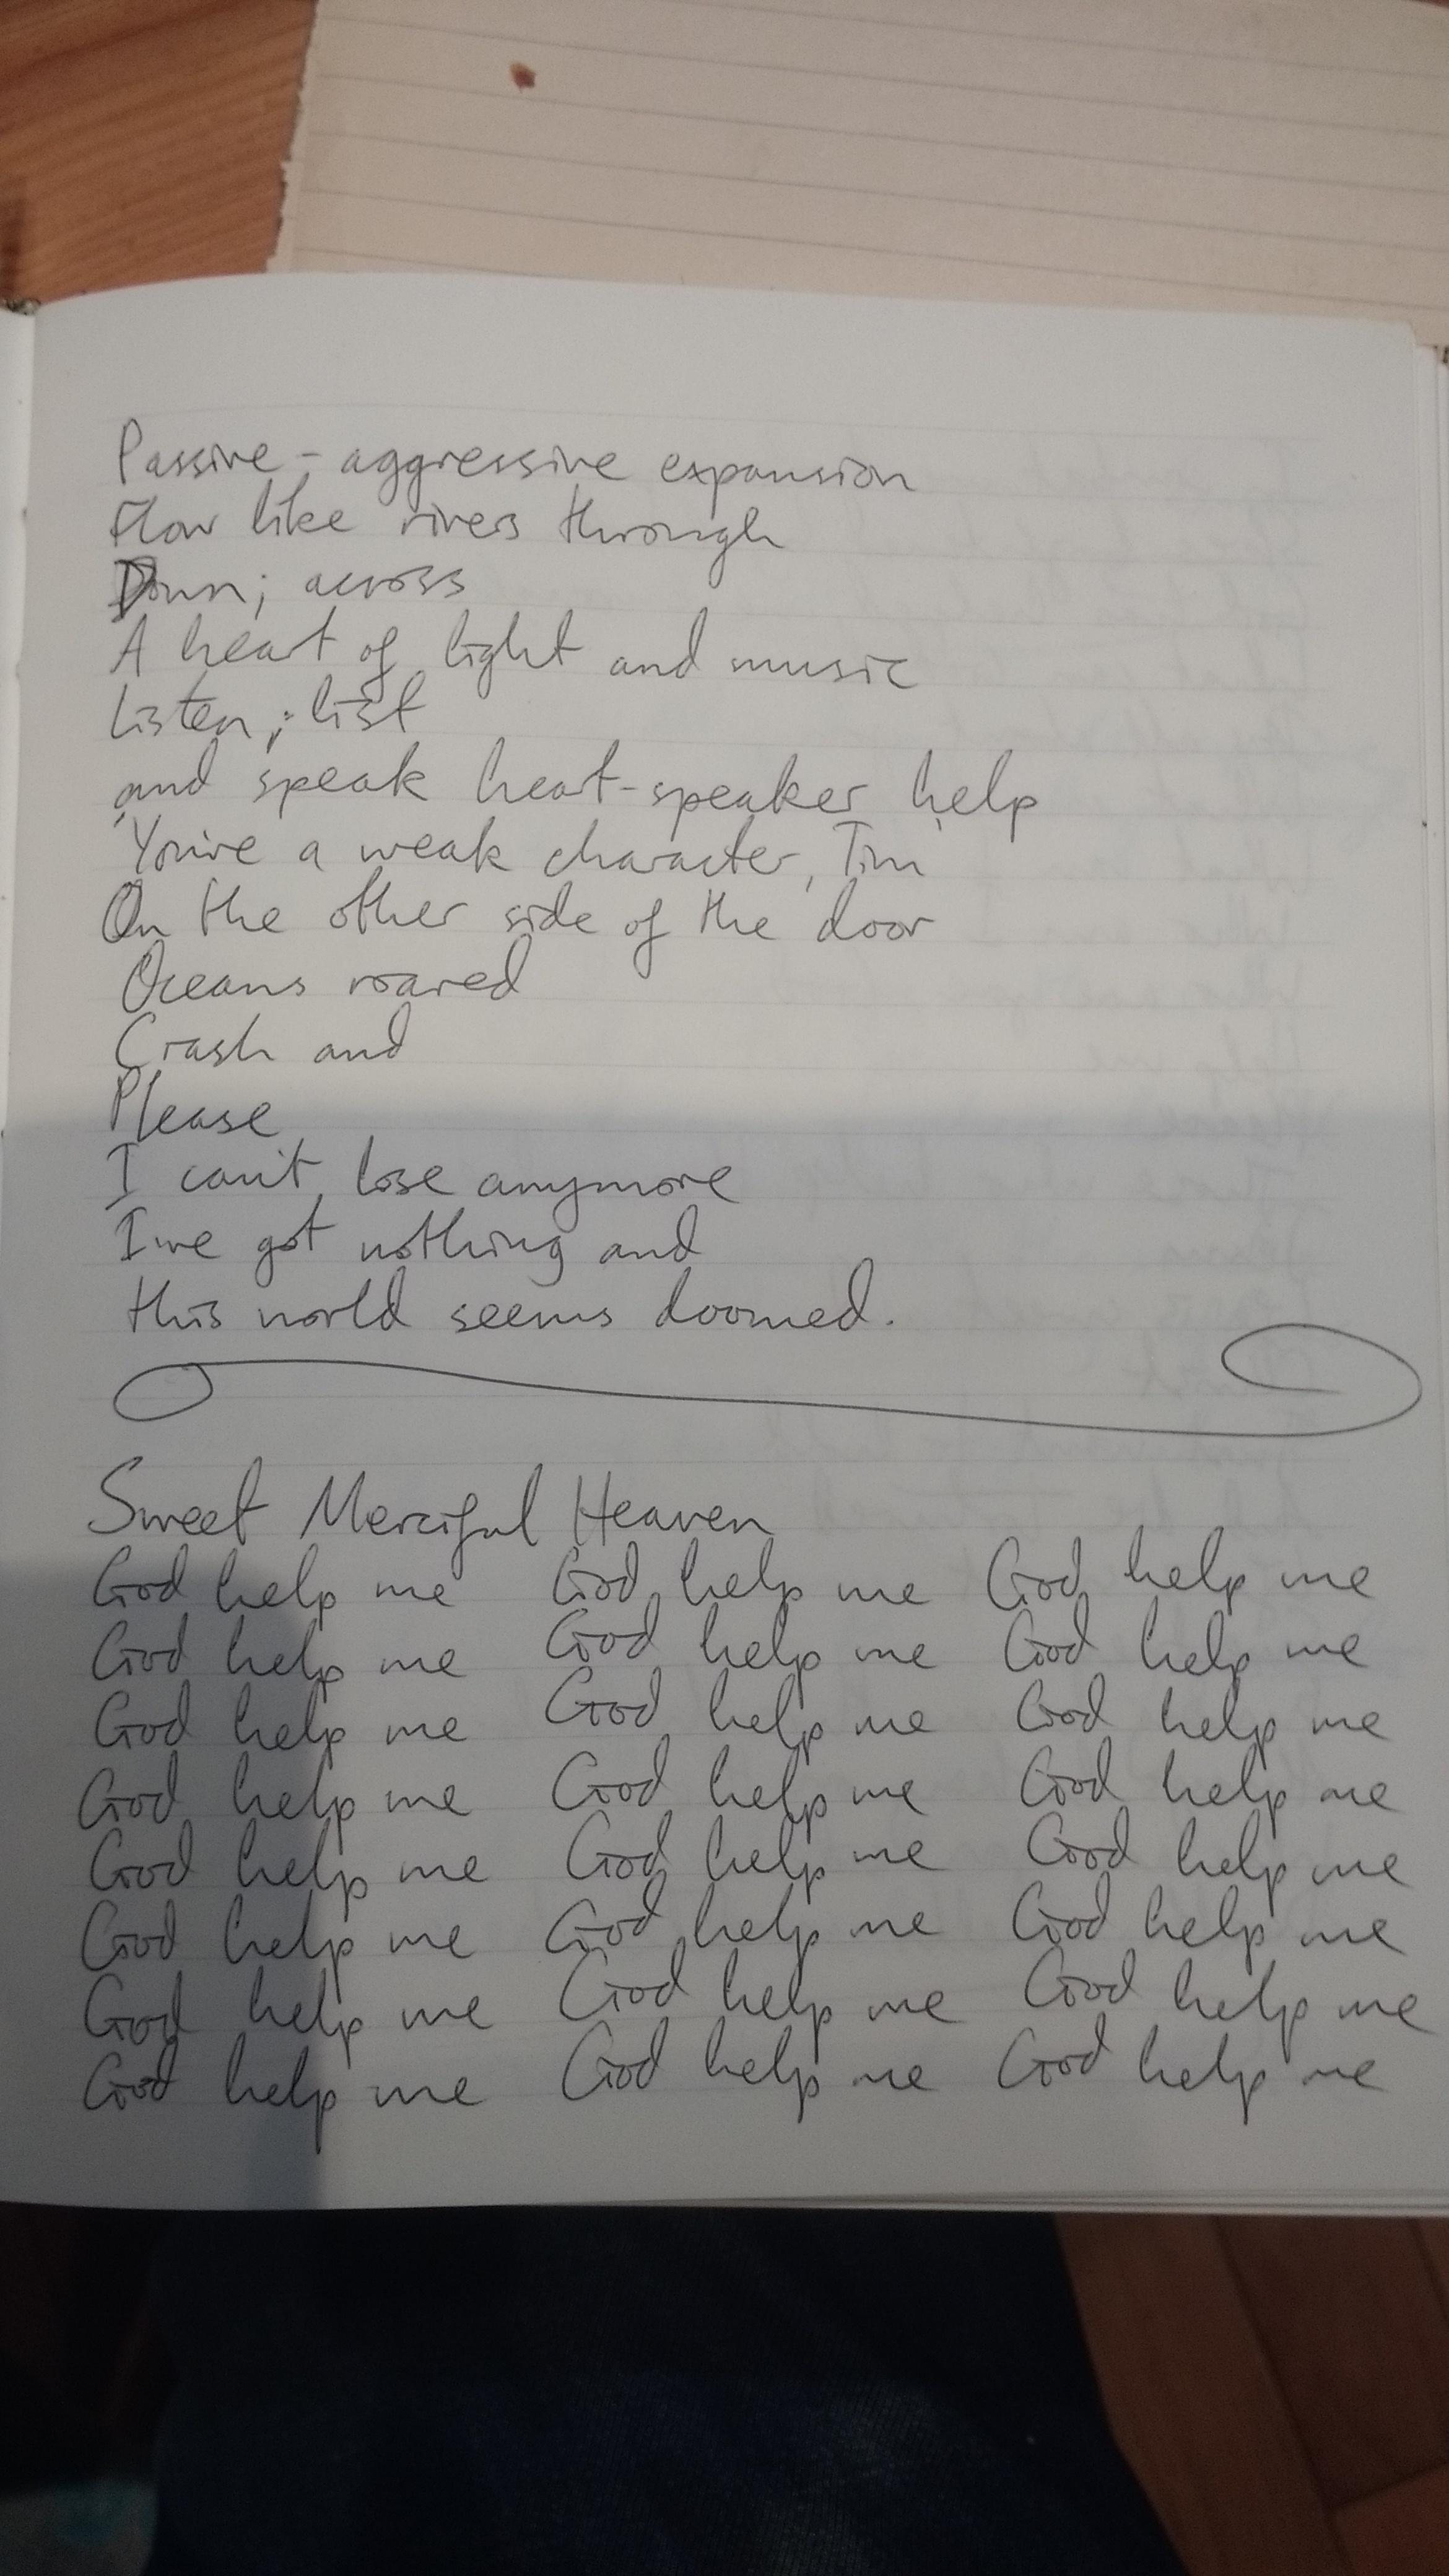 Passive-aggressive expansion
Flow like rivers through
Down; across
A heart of light and music
Listen; list
and speak heart-speaker help
You're a weak character, Tim
On the other side of the door
Oceans roared
Crash and
Please
I can't lose anymore
I've got nothing and
this world seems doomed.
Sweet Merciful Heaven
God help me God help me God help me
God help me God help me God help me
God help me God help me God help me
God help me God help me God help me
God help me God help me God help me
God help me God help me God help me
God help me God help me God help me
God help me God help me God help me